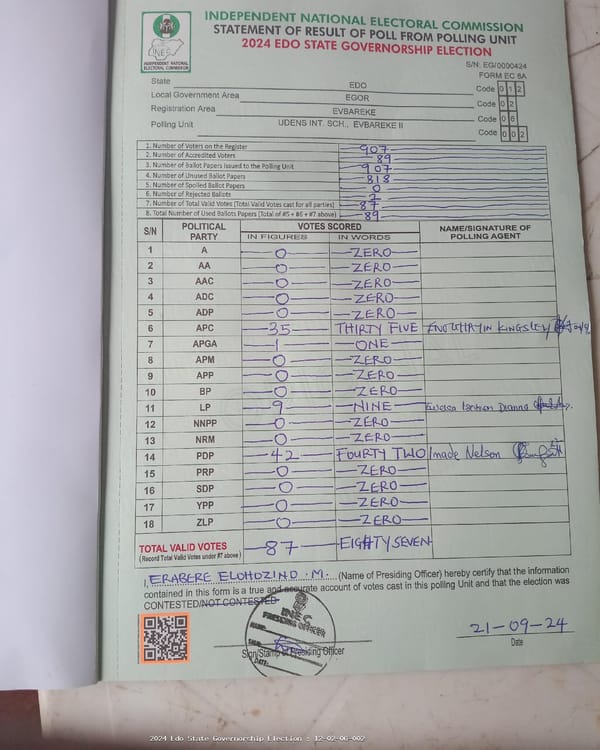 INDEPENDENT NATIONAL ELECTORAL COMMISSION
STATEMENT OF RESULT OF POLL FROM POLLING UNIT
2024 EDO STATE GOVERNORSHIP ELECTION
INEC
INDEPENDENT NATIONAL
ELECTORAL COMMISSION
S/N: EG/0000424
FORM EC 8A
State EDO Code 0 1 2
Local Government Area EGOR Code 0 2
Registration Area EVBAREKE Code 0 6
Polling Unit UDENS INT. SCH., EVBAREKE II Code 0 0 2
1. Number of Voters on the Register 907
2. Number of Accredited Voters 89
3. Number of Ballot Papers Issued to the Polling Unit 907
4. Number of Unused Ballot Papers 818
5. Number of Spoiled Ballot Papers 0
6. Number of Rejected Ballots 2
7. Number of Total Valid Votes (Total Valid Votes cast for all parties) 87
8. Total Number of Used Ballots Papers (Total of #5 + #6 + #7 above) 89
S/N POLITICAL PARTY VOTES SCORED NAME/SIGNATURE OF POLLING AGENT
IN FIGURES IN WORDS
1 A 0 ZERO
2 AA 0 ZERO
3 AAC 0 ZERO
4 ADC 0 ZERO
5 ADP 0 ZERO
6 APC 35 THIRTY FIVE KINGSLEY
7 APGA 1 ONE
8 APM 0 ZERO
9 APP 0 ZERO
10 BP 0 ZERO
11 LP 9 NINE
12 NNPP 0 ZERO
13 NRM 0 ZERO
14 PDP 42 FOURTY TWO Imade Nelson
15 PRP 0 ZERO
16 SDP 0 ZERO
17 YPP 0 ZERO
18 ZLP 0 ZERO
TOTAL VALID VOTES 87 EIGHTY SEVEN
(Record Total Valid Votes under #7 above)
I, ERABERE ELOHOZINO .M. (Name of Presiding Officer) hereby certify that the information
contained in this form is a true and accurate account of votes cast in this polling Unit and that the election was
CONTESTED/NOT CONTESTED
INEC
PRESIDING OFFICER
NAME:
SIGN:
DATE:
Sign/Stamp of Presiding Officer
21-09-24
Date
2024 Edo State Governorship Election : 12-02-06-002